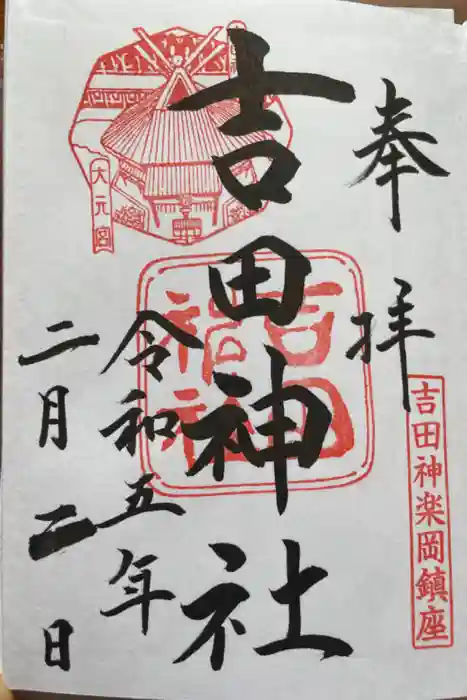 奉拝
吉田神楽岡鎮座
吉田神社
吉田神社
大元宮
令和五年
二月二日